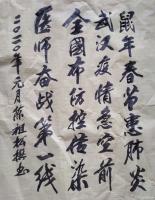 鼠年春节惠肺炎
武汉疫情急空前
全國布彷控传染
医师奋战第一线
二〇二〇年元月陈祖松撰书